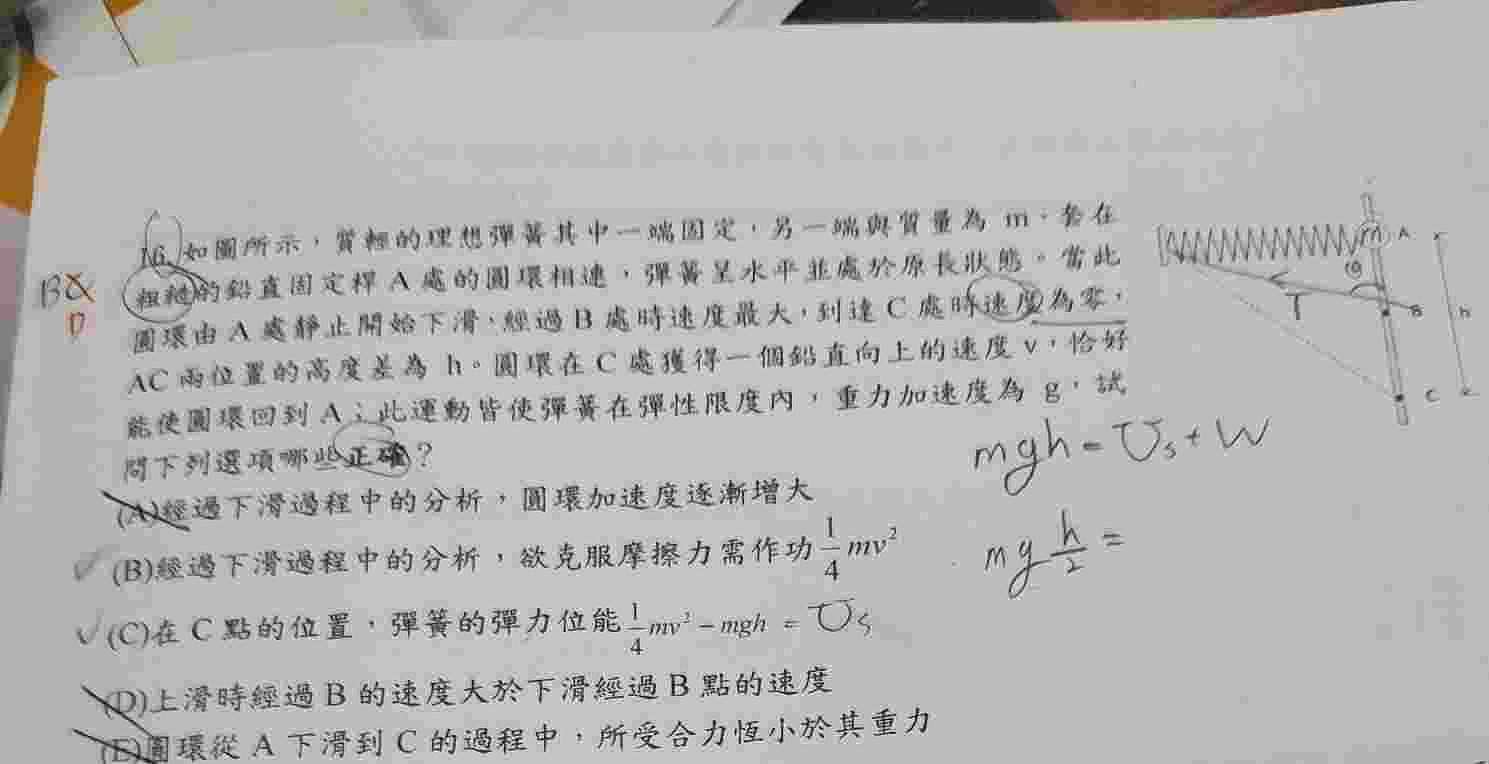 16.如圖所示，質輕的理想彈簧其中一端固定，另一端與質量為 m、套在
粗糙的鉛直固定桿 A 處的圓環相連，彈簧呈水平並處於原長狀態。當此
圓環由 A 處靜止開始下滑，經過 B 處時速度最大，到達 C 處時速度為零，
AC 兩位置的高度差為 h。圓環在 C 處獲得一個鉛直向上的速度 v，恰好
能使圓環回到 A；此運動皆使彈簧在彈性限度內，重力加速度為 g，試
問下列選項哪些正確？
(A)經過下滑過程中的分析，圓環加速度逐漸增大
(B)經過下滑過程中的分析，欲克服摩擦力需作功 1/4 mv²
(C)在 C 點的位置，彈簧的彈力位能 1/4 mv² − mgh = Us
(D)上滑時經過 B 的速度大於下滑經過 B 點的速度
(E)圓環從 A 下滑到 C 的過程中，所受合力恆小於其重力
B
D
m A
θ
T
B
h
C
mgh = Us + W
mg h/2 =